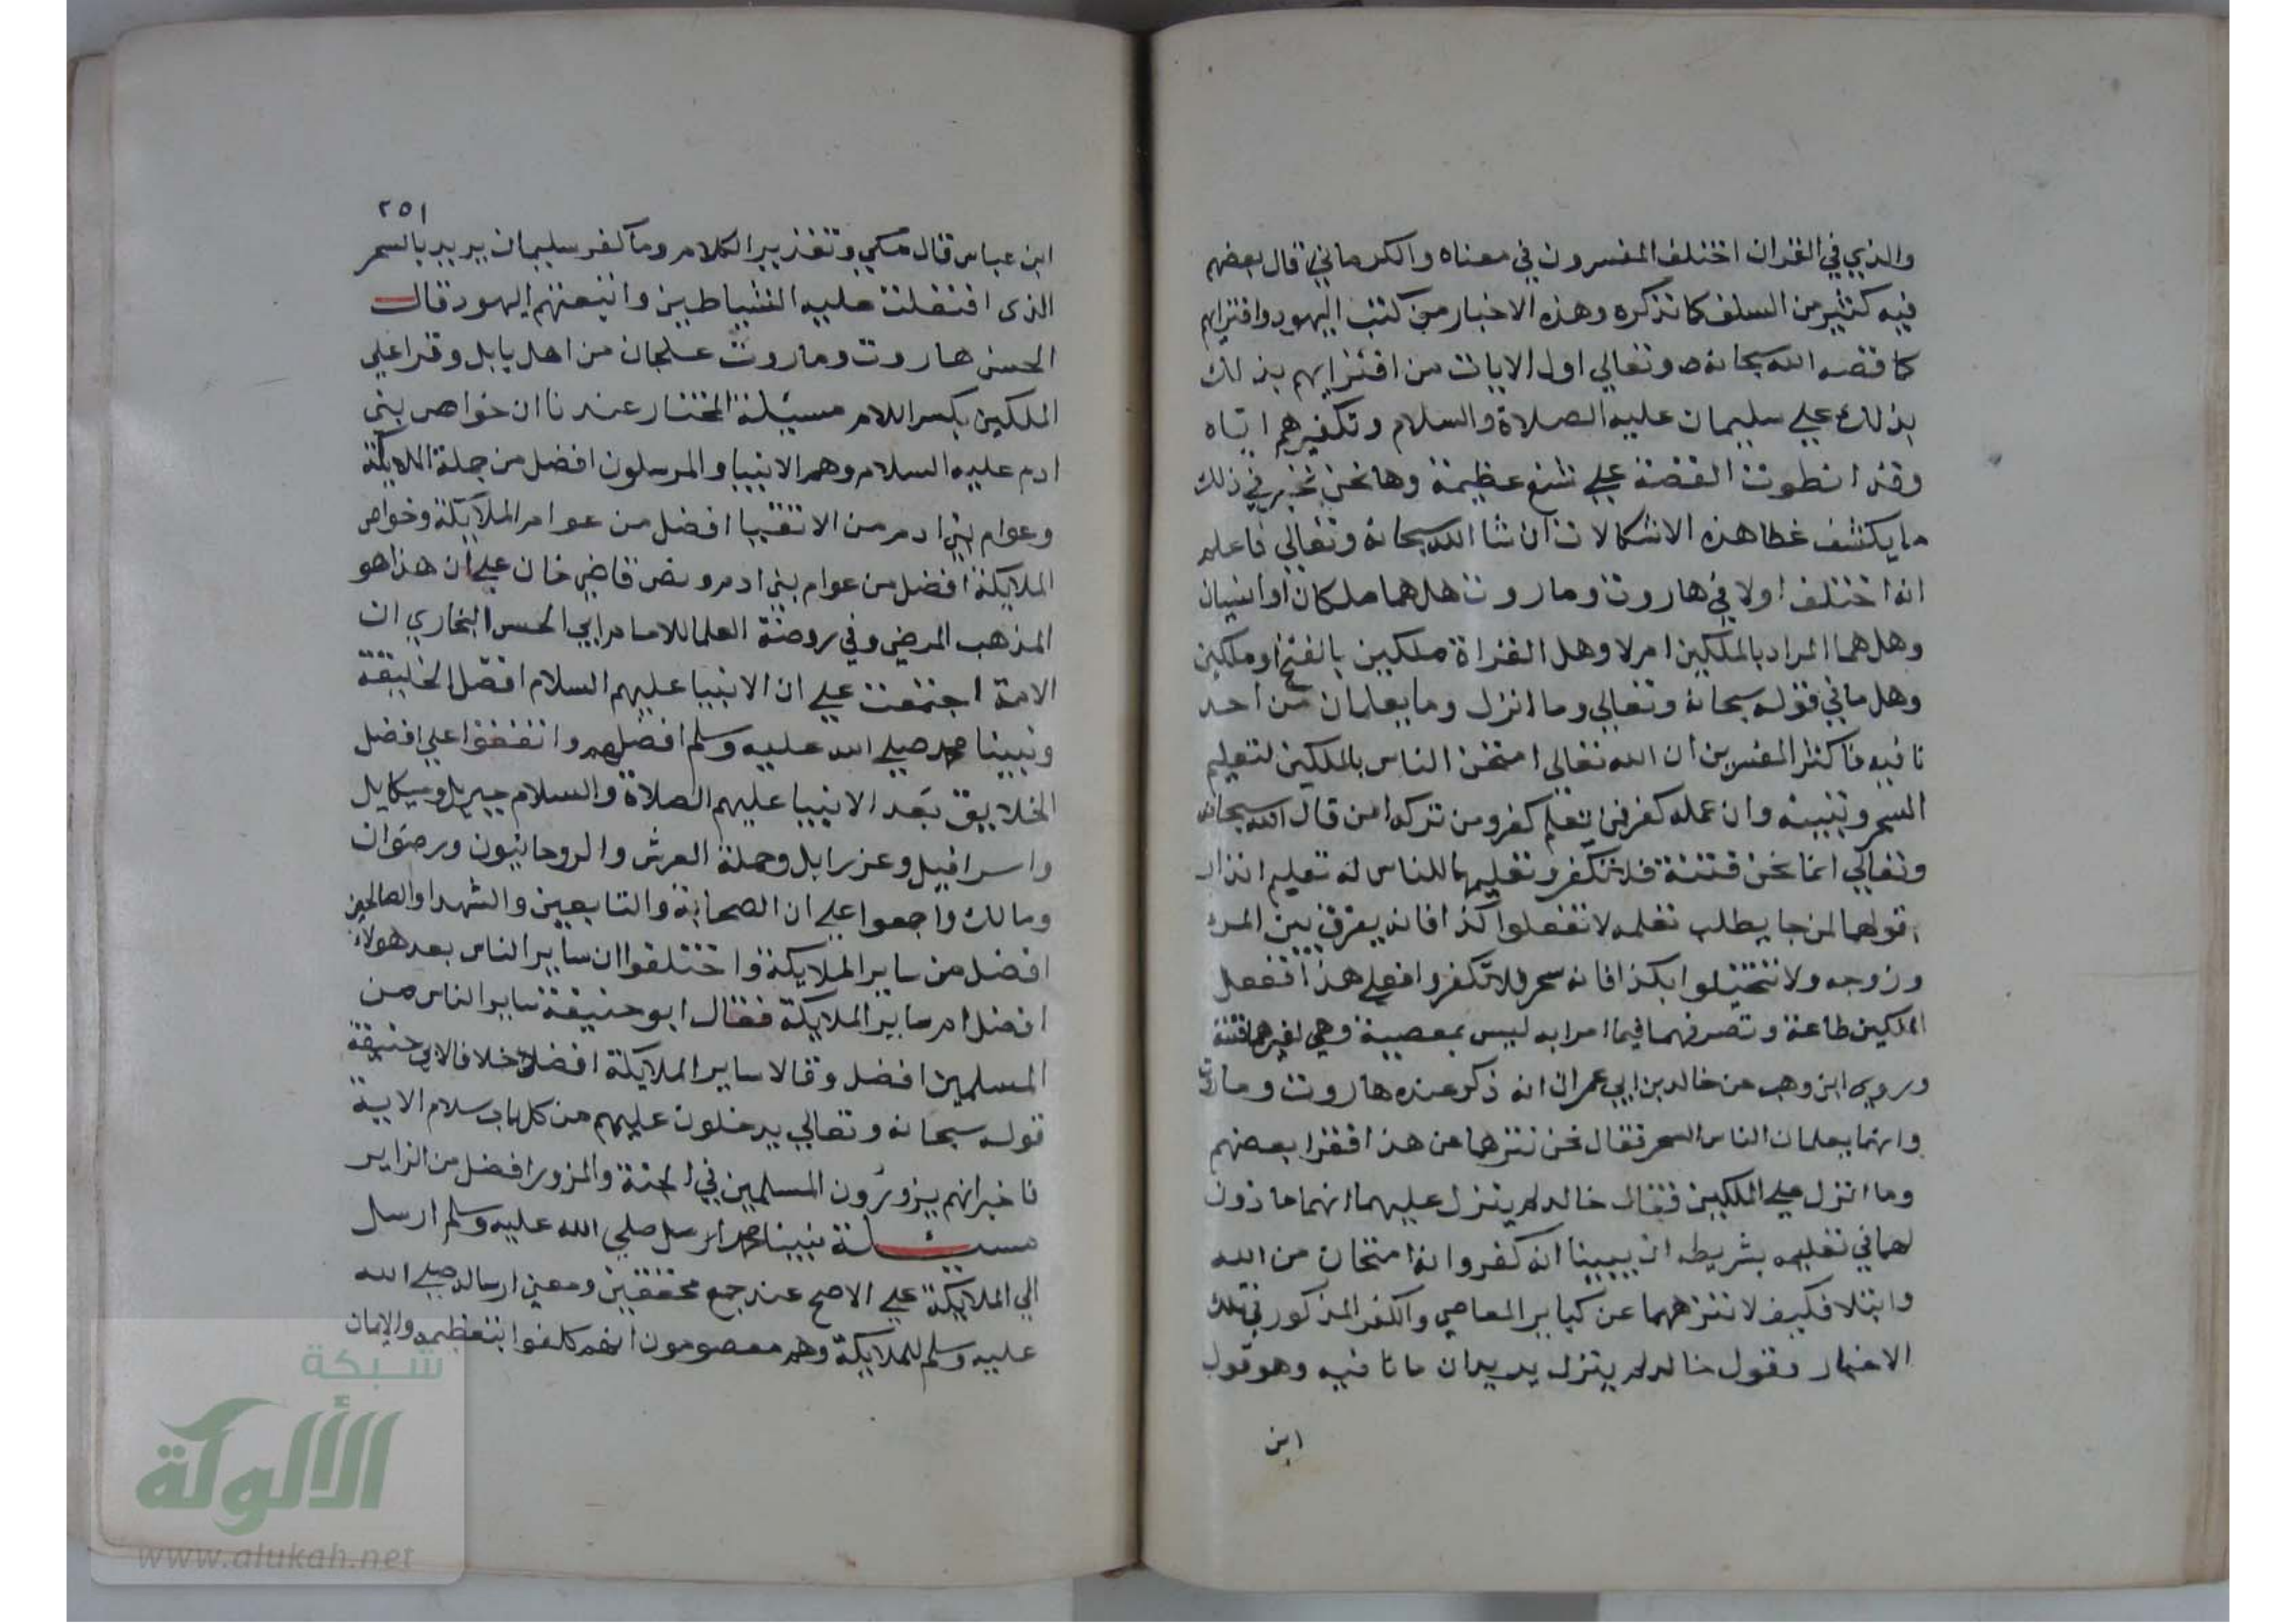 والذي في القران اختلف المفسرون في معناه والكرماني قال بعضهم
فيه كثير من السلف كما نذكره وهذه الاخبار من كتب اليهود وافترايهم
كما قصه الله سبحانه وتعالي اول الايات من افترايهم بذلك
بذلك علي سليمان عليه الصلاة والسلام وتكفيرهم اياه
وقد انطوت القصة علي شنع عظيمة وها نحن نخبر في ذلك
ما يكشف غطا هذه الاشكالات ان شا الله سبحانه وتعالي فاعلم
انه اختلف اولا في هاروت وماروت هل هما ملكان او انسيان
وهل هما المراد بالملكين ام لا وهل القراة ملكين بالفتح او ملكين
وهل ما في قوله سبحانه وتعالي وما انزل وما يعلمان من احد
نافيه فاكثر المفسرين ان الله تعالي امتحن الناس بالملكين لتعليم
السحر وتبيينه وان عمله كفر فمن تعلم كفر ومن تركه امن قال الله سبحانه
وتعالي انما نحن فتنة فلا تكفر وتعليمهما للناس له تعليم انذار
قولهما لمن جا يطلب تعلمه لا تفعلوا كذا فانه يفرق بين المرء
وزوجه ولا تتخيلوا بكذا فانه سحر فلا تكفروا فعلي هذا فعل
الملكين طاعة وتصرفهما فيما امرا به ليس بمعصية وهي لغيرهما فتنة
وروي ابن وهب عن خالد بن ابي عمران انه ذكر عنده هاروت وماروت
وانهما يعلمان الناس السحر فقال نحن ننزهما عن هذا فقرا بعضهم
وما انزل علي الملكين فقال خالد لم ينزل عليهما انهما ماذون
لهما في تعليمه بشريطة ان يبينا انه كفر وانه امتحان من الله
وابتلا فكيف لا ننزههما عن كباير المعاصي والكفر المذكور في تلك
الاخبار وقول خالد لم ينزل يريد ان ما نافيه وهو قول
ابن
٢٥١
ابن عباس قال مكي وتقدير الكلام وما كفر سليمان يريد بالسحر
الذي افتعلت عليه الشياطين واتبعتهم اليهود قال
الحسن هاروت وماروت علجان من اهل بابل وقرا علي
الملكين بكسر اللام مسئلة المختار عندنا ان خواص بني
ادم عليه السلام وهم الانبيا والمرسلون افضل من جملة الملايكة
وعوام بني ادم من الاتقيا افضل من عوام الملايكة وخواص
الملايكة افضل من عوام بني ادم ونص قاضي خان علي ان هذا هو
المذهب المرضي وفي روضة العلما للامام ابي الحسن البخاري ان
الامة اجتمعت علي ان الانبيا عليهم السلام افضل الخليقة
ونبينا محمد صلي الله عليه وسلم افضلهم واتفقوا علي افضل
الخلايق بعد الانبيا عليهم الصلاة والسلام جبريل وميكايل
واسرافيل وعزرايل وحملة العرش والروحانيون ورضوان
ومالك واجمعوا علي ان الصحابة والتابعين والشهدا والصالحين
افضل من ساير الملايكة واختلفوا ان ساير الناس بعد هولاء
افضل ام ساير الملايكة فقال ابو حنيفة ساير الناس من
المسلمين افضل وقالا ساير الملايكة افضل خلافا لابي حنيفة
قوله سبحانه وتعالي يدخلون عليهم من كل باب سلام الاية
فاخبر انهم يزورون المسلمين في الجنة والمزور افضل من الزاير
مسئلة نبينا محمد ارسل صلي الله عليه وسلم ارسل
الي الملايكة علي الاصح عند جمع محققين ومعني ارساله صلي الله
عليه وسلم للملايكة وهم معصومون انهم كلفوا بتعظيمه والايمان
شبكة
الألوكة
www.alukah.net